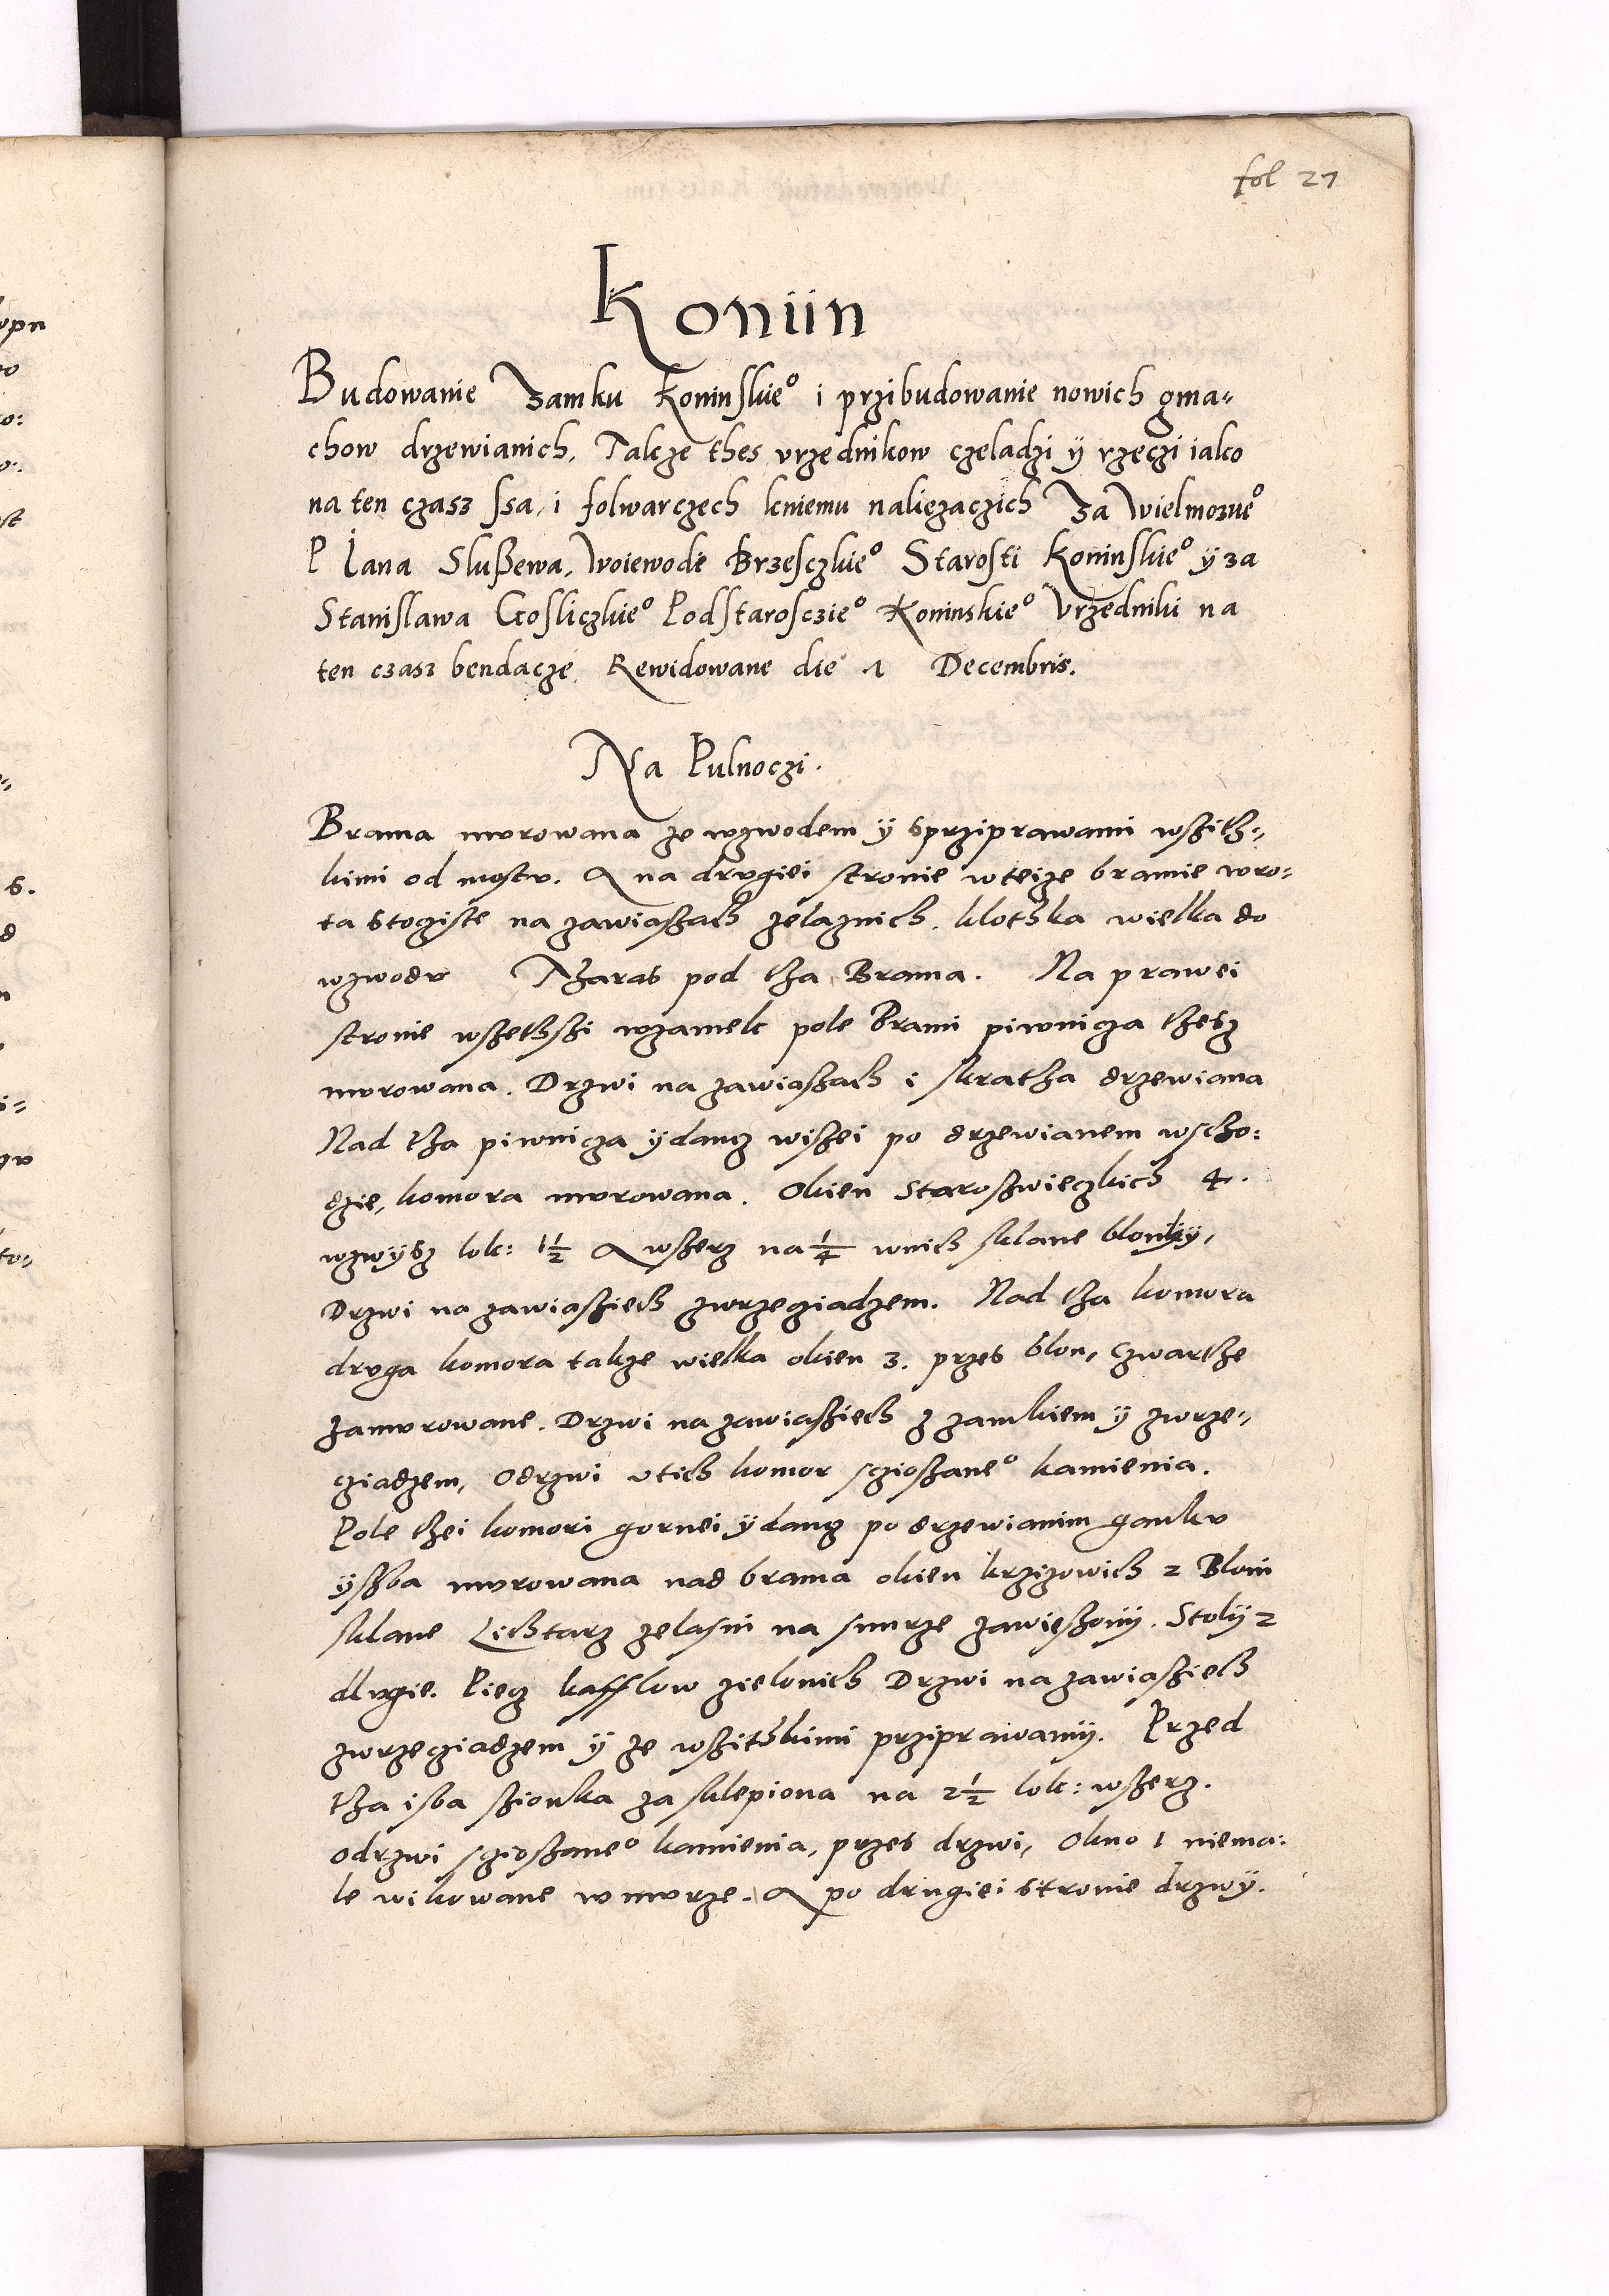 fol 27
Koniin
Budowanie Zamku Koninskieº i przibudowanie nowich gma-
chow drzewianich, Takze thes vrzednikow czeladzi ÿ rzeczi iako
na ten czasz ssa, i folwarczech kniemu naliezaczich Za Wielmozneº
P Jana Slußewa, Woiewode Brzesczkieº Starosti Koninskieº ÿ za
Stanislawa Gosliczkieº Podstarosczieº Koninskieº Vrzedniki na
ten czasz bendacze. Rewidowane die 1 Decembris.
Na Pulnoczi.
Brama mvrowana ze wzwodem ÿ sprziprawami wszith-
kimi od mostv. A na drvgiei stronie wteize bramie wro:
ta stogiste na zawiaszach zelaznich. klothka wielka do
wzwodv Tharas pod tha Brama. Na prawei
stronie wszethszi wzamek pole Brami piwnicza thesz
mvrowana. Drzwi na zawiaszach i kratha drzewiana
Nad tha piwnicza ÿdancz wiszei po drzewianem wscho:
dzie, komora mvrowana. Okien Staroszwieczkich 4.
wzwÿsz lok: 1½ A wszerz na ¼ wnich sklane blonkÿ,
Drzwi na zawiasziech zwrzecziadzem. Nad tha komora
drvga komora takze wielka okien 3. przes blon, czwarthe
zamvrowane. Drzwi na zawiasziech z zamkiem ÿ zwrze-
cziadzem, Odrzwi vtich komor sczioszaneº kamienia.
Pole thei komori gornei ÿdancz po drzewianim gankv
ÿszba mvrowana nad brama okien krzizowich 2 Blonÿ
sklane Lichtarz zelasni na snvrze zawieszonÿ. Stolÿ 2
dlvgie. Piecz kafflow zielonich Drzwi na zawiasziech
zwrzecziadzem ÿ ze wszithkimi prziprawamÿ. Przed
tha isba szionka zasklepiona na 2½ lok: wszerz.
Odrzwi sczioszaneº kamienia, przes drzwi, Okno 1 niema:
le wikowane wmvrze. A po drugiei stronie drzwÿ.